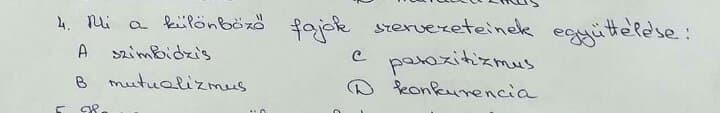 4. Mi a különböző fajok szervezeteinek együttélése:
A szimbiózis C parazitizmus
B mutualizmus D konkurencia